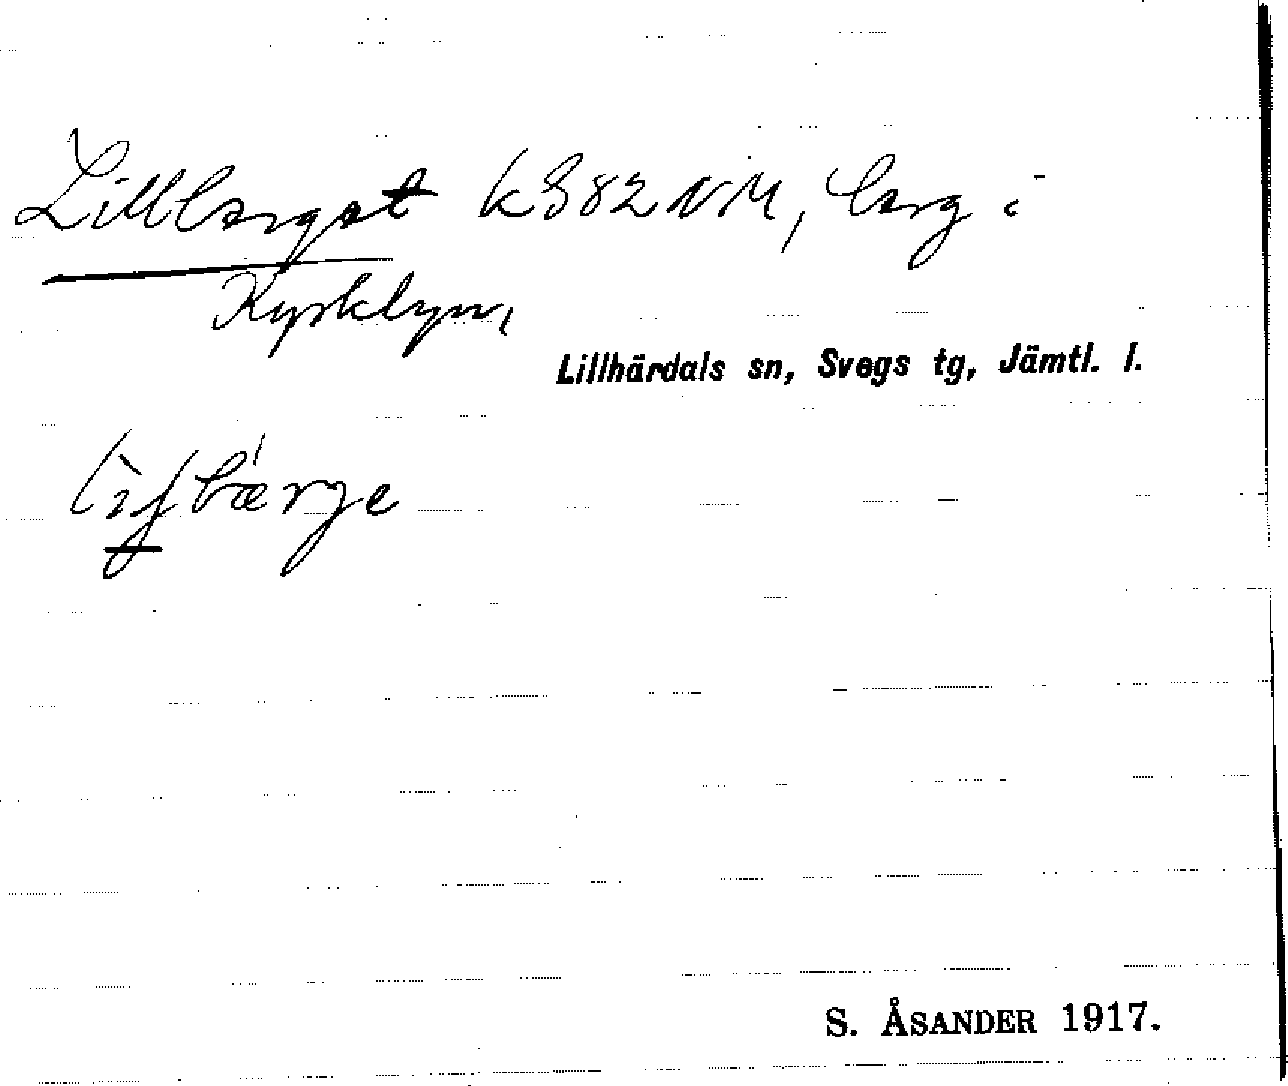 Lillberget k382NM, berg i
Kyrkbyn,
Lillhärdals sn, Svegs tg, Jämtl. l.
S. ÅSANDER 1917.